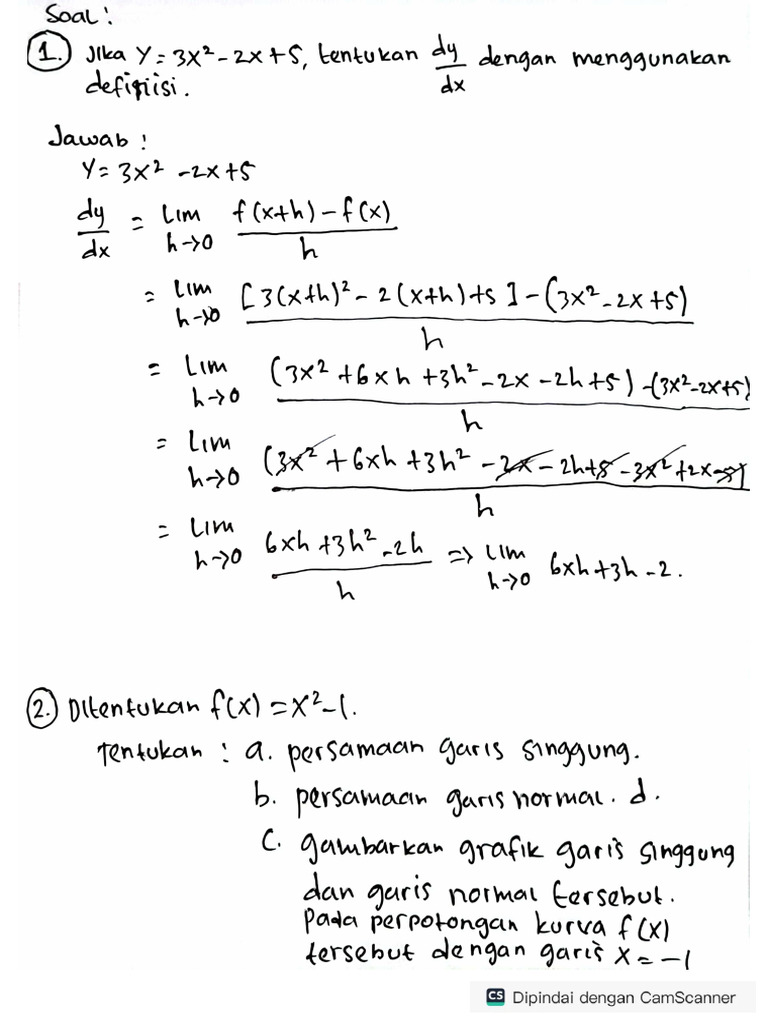 Soal :
1. Jika Y = 3x² - 2x + 5, tentukan dy/dx dengan menggunakan
definisi.
Jawab :
Y = 3x² - 2x + 5
dy/dx = Lim h→0 f(x+h) - f(x) / h
= Lim h→0 [3(x+h)² - 2(x+h) + 5] - (3x² - 2x + 5) / h
= Lim h→0 (3x² + 6xh + 3h² - 2x - 2h + 5) - (3x² - 2x + 5) / h
= Lim h→0 (3x² + 6xh + 3h² - 2x - 2h + 5 - 3x² + 2x - 5) / h
= Lim h→0 6xh + 3h² - 2h / h => Lim h→0 6xh + 3h - 2.
2. Ditentukan f(x) = x² - 1.
Tentukan : a. persamaan garis singgung.
b. persamaan garis normal. d.
c. gambarkan grafik garis singgung
dan garis normal tersebut.
Pada perpotongan kurva f(x)
tersebut dengan garis x = -1
CS Dipindai dengan CamScanner